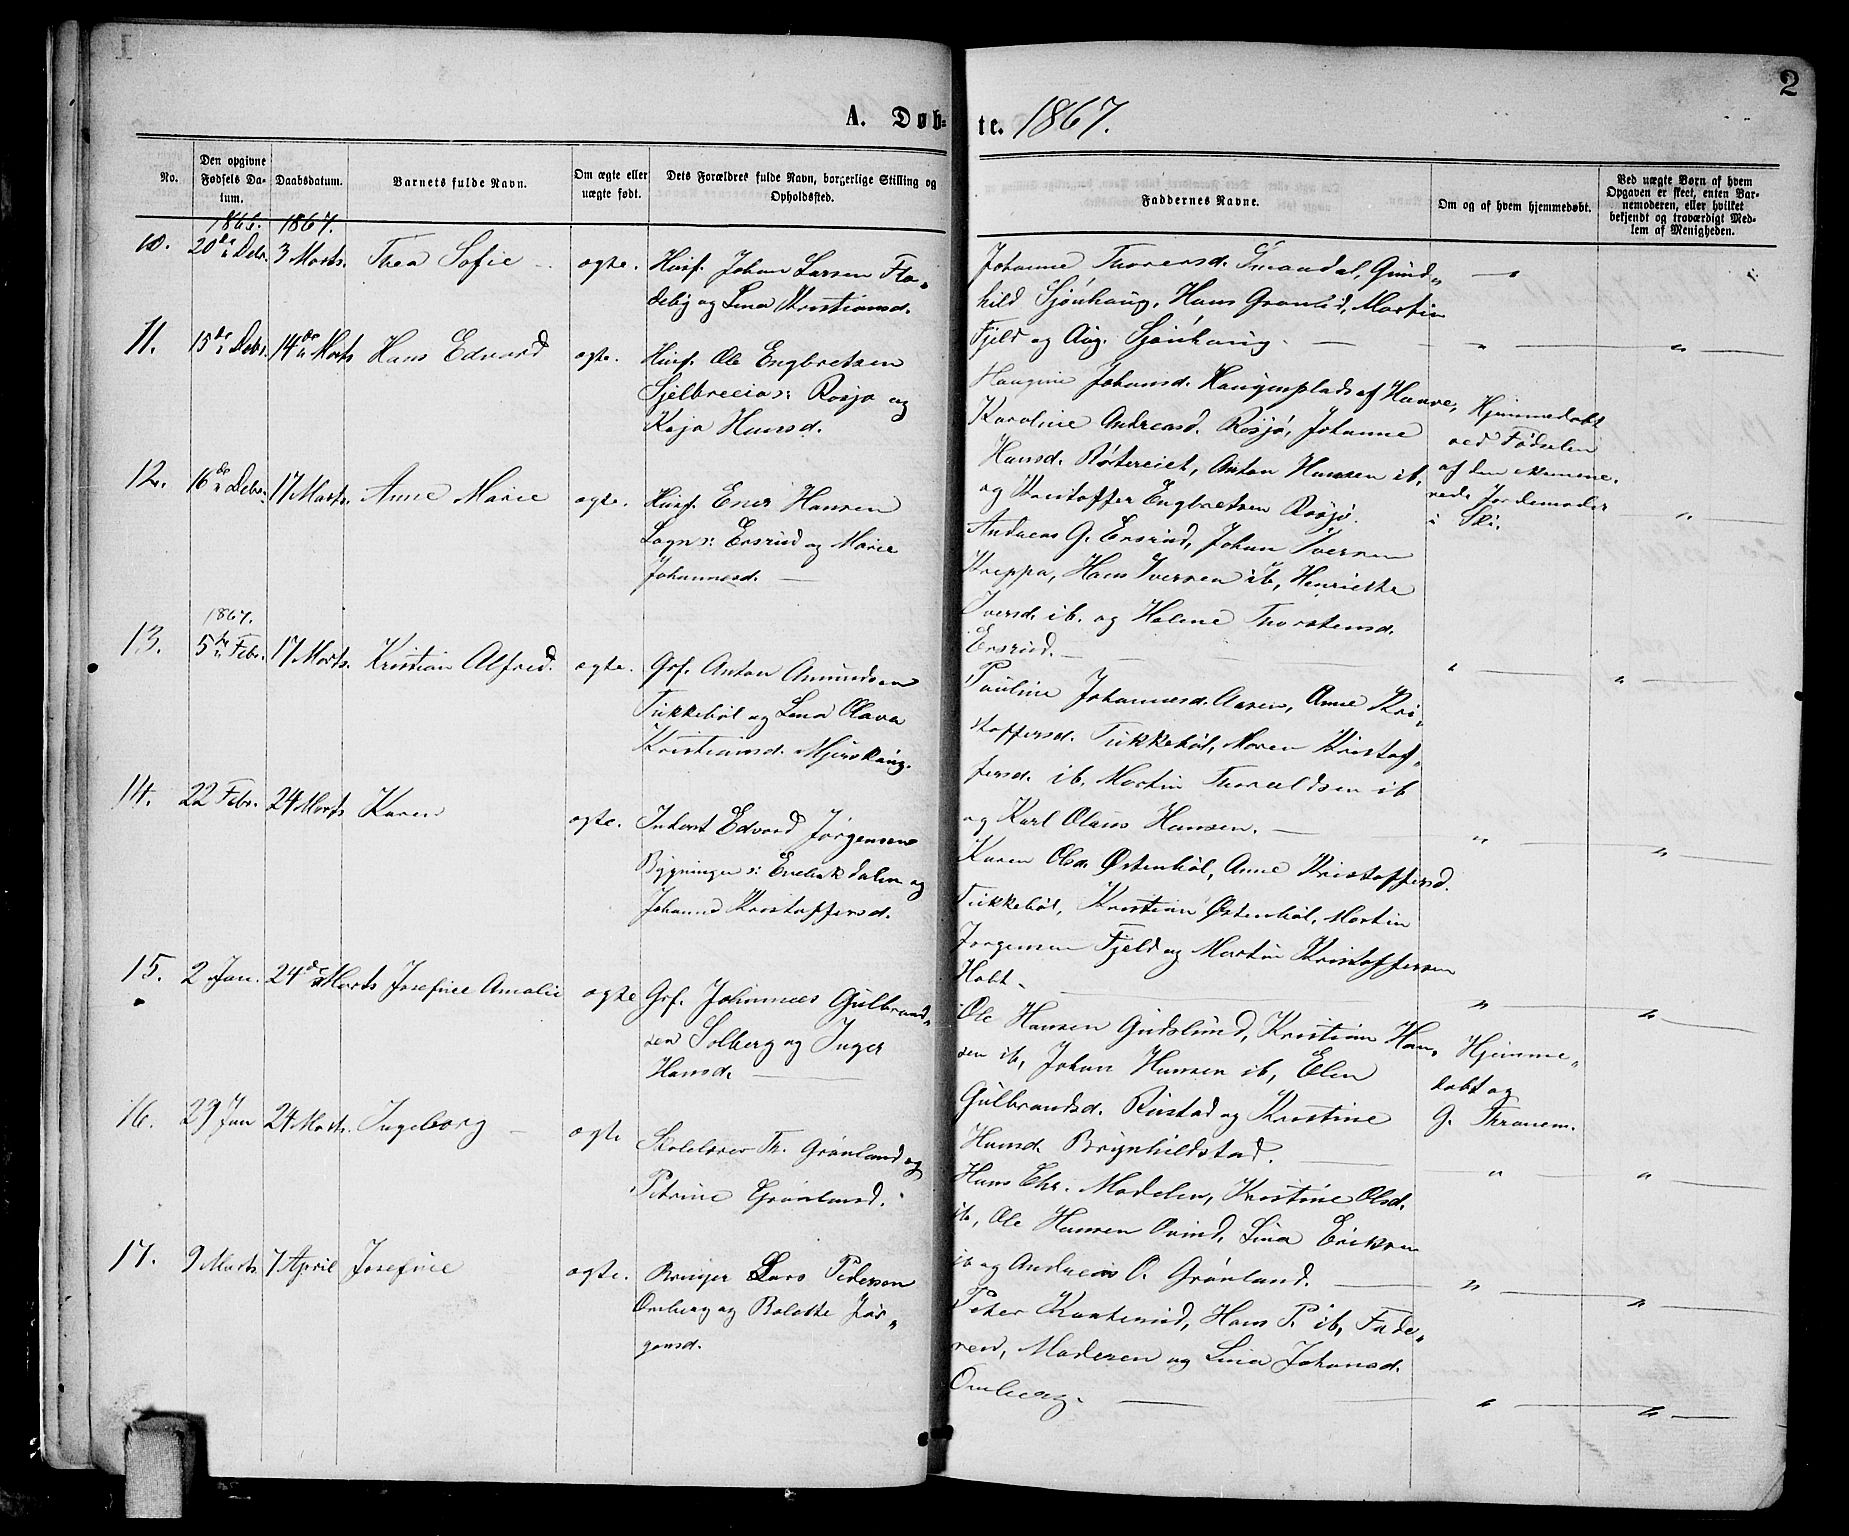 2
A. Døb-
te. 1867.
No.
Den opgivne Fødsels Datum.
Daabsdatum.
Barnets fulde Navn.
Om ægte eller uægte født.
Dets Forældres fulde Navn, borgerlige Stilling og Opholdssted.
Faddernes Navne.
Om og af hvem hjemmedøbt.
Ved uægte Børn af hvem Opgaven er skeet, enten Barnemoderen, eller hvilket bekjendt og troværdigt Medlem af Menigheden.
1866. 1867.
10. 20de Debr. 3 Marts. Thea Sofie ægte. Husf. Johan Larsen Fla-
deby og Lina Kristiansd.
Johanne Thorersd. Smaadal, Gund-
hild Sjønhaug, Hans Granlid, Martin
Fjeld og Aug. Sjønhaug.
11. 15de Debr. 14de Marts Hans Edvard ægte. Husf. Ole Engbretsen
Sjelbreeia s: Rosjø og
Kaja Hansd.
Haugine Johansd. Haugenplads af Haave,
Karoline Andreasd. Rosjø, Johanne
Hansd. Røtereiet, Anton Hansen ib.
og Kristoffer Engbretsen Rosjø.
Hjemmedøbt
ved Fødselen
af den examine-
rede Jordemoder
i Ski.
12. 16de Debr. 17 Marts. Anne Marie ægte. Husf. Ener Hansen
Logn s: Ersrud og Marie
Johannesd.
Andreas G. Ersrud, Johan Iversen
Kreppa, Hans Iversen ib, Henriette
Iversd. ib. og Helene Thorstensd.
Ersrud.
1867.
13. 5te Febr. 17 Marts. Kristian Alfred. ægte. Grf. Anton Amundsen
Tukkebøl og Lina Olava
Kristiansd. Mjerskaug.
Pauline Johannesd. Aasen, Anne Kri-
stoffersd. Tukkebøl, Maren Kristof-
fersd. ib, Martin Thoraldsen ib
og Karl Olaus Hansen.
14. 22 Febr. 24 Marts Karen ægte. Inderst Edvard Jørgensen
Bygningen s: Enebakdalen og
Johanne Kristoffersd.
Karen Olsd. Østenbøl, Anne Kristoffersd.
Tukkebøl, Kristian Østenbøl, Martin
Jørgensen Fjeld og Martin Kristoffersen
Holt.
15. 2 Jan. 24de Marts Josefine Amalie ægte Grf. Johannes Gulbrand-
sen Solberg og Inger
Hansd.
Ole Hansen Gudslund, Kristian Han-
sen ib, Johan Hansen ib, Elen
Gulbrandsd. Rustad og Kristine
Hansd. Brynhildstad.
Hjemme-
døbt og
G. Thronem.
16. 29 Jan 24 Marts. Ingeborg ægte Skolelærer Th. Grønland og
Petrine Grønlund.
Hans Chr. Modelen, Kristine Olsd.
ib, Ole Hansen Ovind, Lina Eriksen
ib og Andreas O. Grønland.
17. 9 Marts 7 April Josefine ægte. Bruger Lars Pedersen
Omberg og Bolette Jør-
gensd.
Peter Kanterud, Hans P. ib, Fade-
ren, Moderen og Lina Johansd.
Omberg.